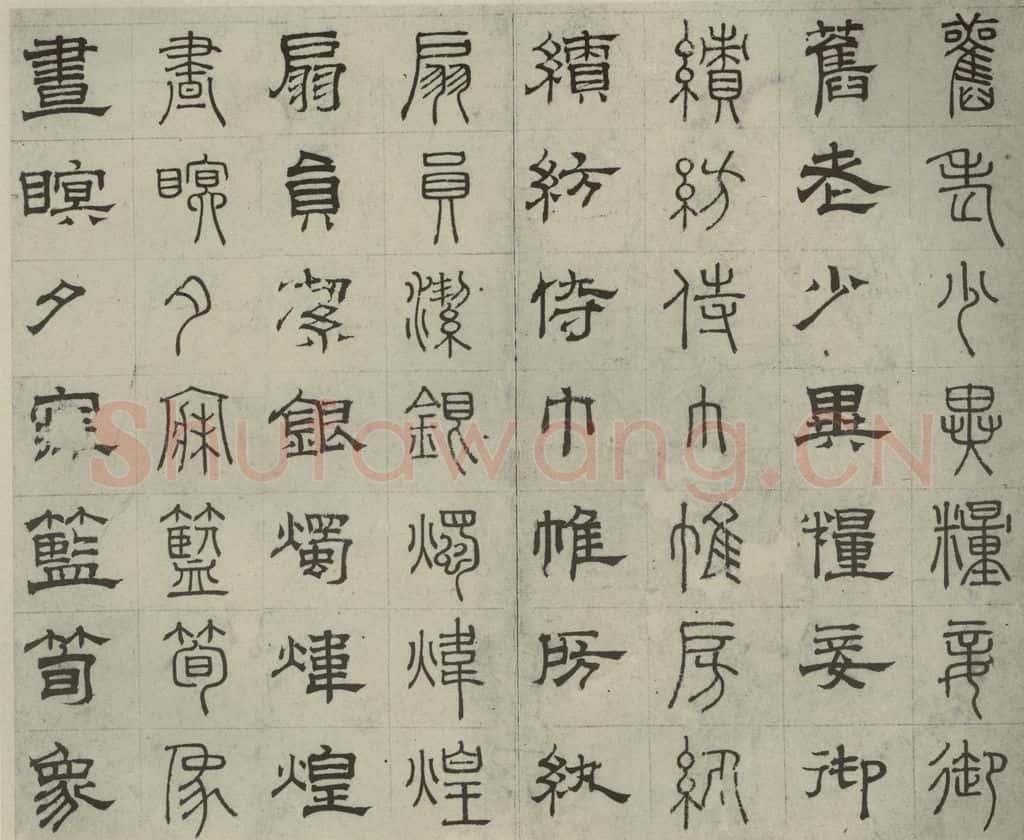 舊老少異糧妾御
舊老少異糧妾御
績紡侍巾帷房紈
績紡侍巾帷房紈
扇員潔銀燭煒煌
扇員絜銀燭煒煌
晝瞑夕寐籃筍像
晝瞑夕寐籃筍象
Shufawang.CN